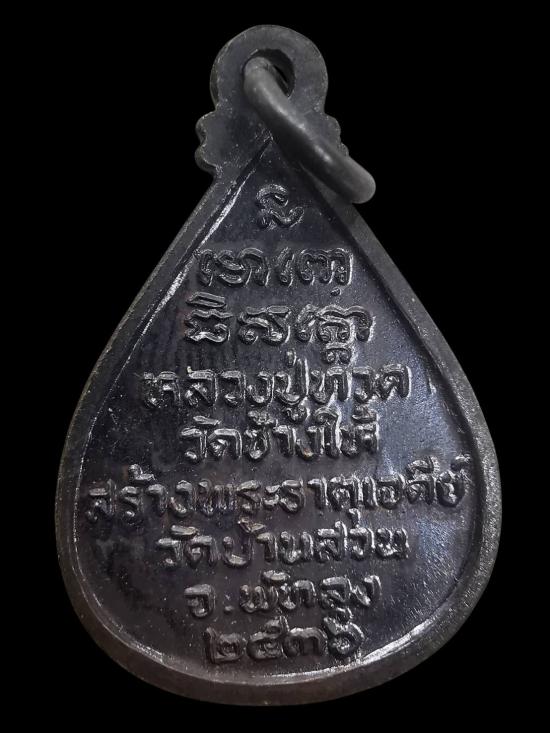 หลวงปู่ทวด
วัดช้างให้
สร้างพระธาตุเจดีย์
วัดบ้านสวน
จ.พัทลุง
๒๕๓๖